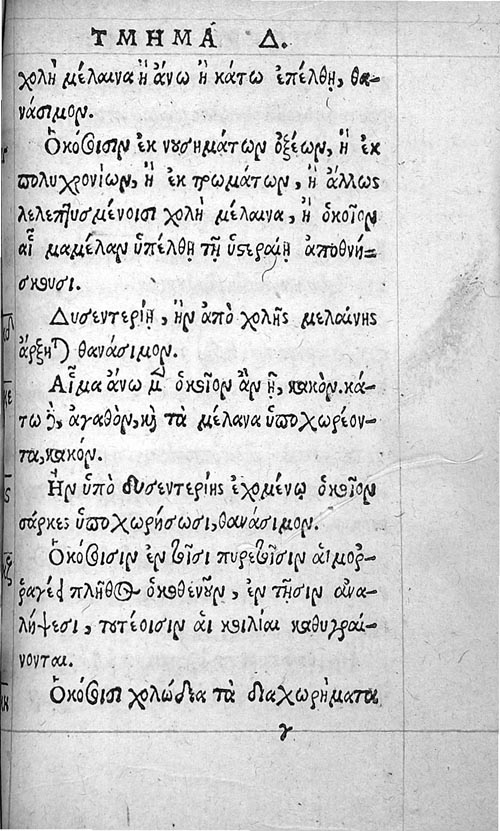 ΤΜΗΜΑ Δ.
χολὴ μέλαινα ἢ ἄνω ἢ κάτω ἐπέλθῃ, θα-
νάσιμον.
Ὁκόσοισιν ἐκ νουσημάτων ὀξέων, ἢ ἐκ
πολυχρονίων, ἢ ἐκ τρωμάτων, ἢ ἄλλως
λελεπτυσμένοισι χολὴ μέλαινα, ἢ ὁκοῖον
αἷμα μέλαν ὑπέλθῃ τῇ ὑστεραίῃ ἀποθνή-
σκουσι.
Δυσεντερίη, ἢν ἀπὸ χολῆς μελαίνης
ἄρξηται θανάσιμον.
Αἷμα ἄνω μὲν ὁκοῖον ἂν ᾖ, κακὸν. κά-
τω δὲ, ἀγαθὸν, καὶ τὰ μέλανα ὑποχωρέον-
τα, κακόν.
Ἢν ὑπὸ δυσεντερίης ἐχομένῳ ὁκοῖον
σάρκες ὑποχωρήσωσι, θανάσιμον.
Ὁκόσοισιν ἐν τοῖσι πυρετοῖσιν αἱμοῤ-
ῥαγέει πλῆθος ὁκοθενοῦν, ἐν τῇσιν ἀνα-
λήψεσι, τουτέοισιν αἱ κοιλίαι καθυγραί-
νονται.
Ὁκόσοισι χολώδεα τὰ διαχωρήματα
γ